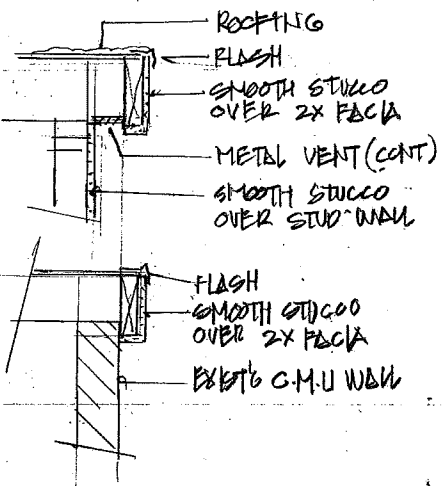 ROOFING
FLASH
SMOOTH STUCCO
OVER 2X FACIA
METAL VENT (CONT)
SMOOTH STUCCO
OVER STUD WALL
FLASH
SMOOTH STUCCO
OVER 2X FACIA
EXIST'G C.M.U WALL